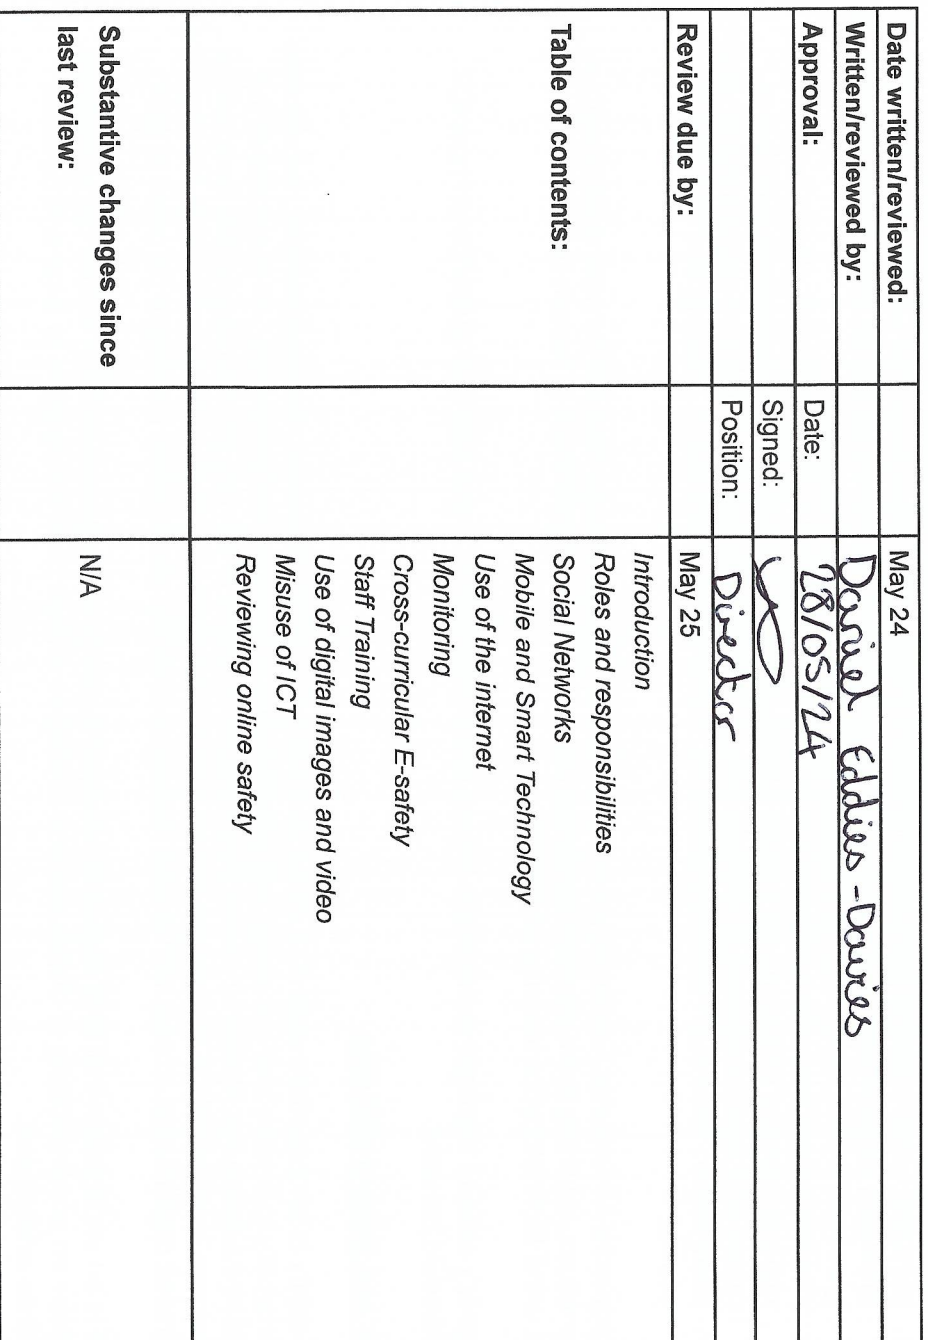 Date written/reviewed: May 24
Written/reviewed by: Daniel Eddies-Davies
Approval: Date: 28/05/24
Signed:
Position: Director
Review due by: May 25
Table of contents:
Introduction
Roles and responsibilities
Social Networks
Mobile and Smart Technology
Use of the internet
Monitoring
Cross-curricular E-safety
Staff Training
Use of digital images and video
Misuse of ICT
Reviewing online safety
Substantive changes since
last review:
N/A